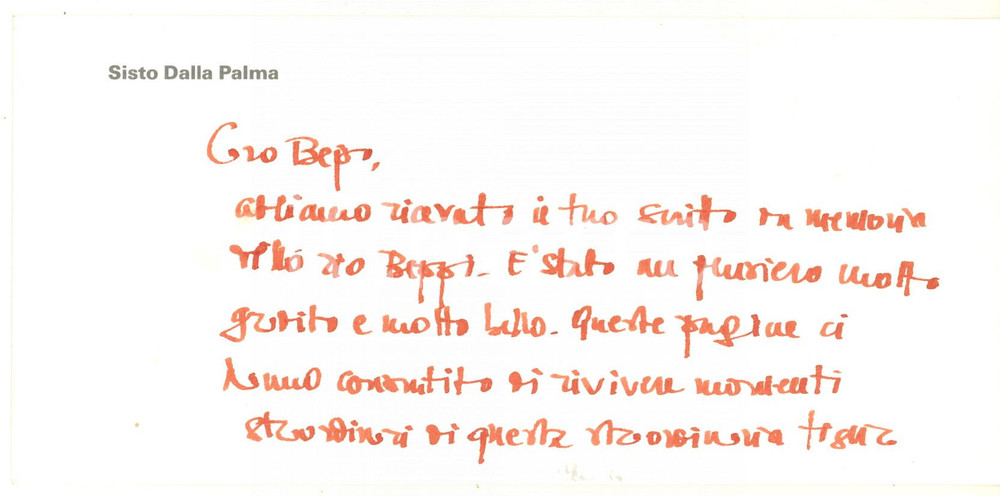 Sisto Dalla Palma
Caro Bepo,
abbiamo ricevuto il tuo scritto in memoria
dello zio Beppi. E' stato un pensiero molto
gradito e molto bello. Queste pagine ci
hanno consentito di rivivere momenti
straordinari di questa straordinaria figura